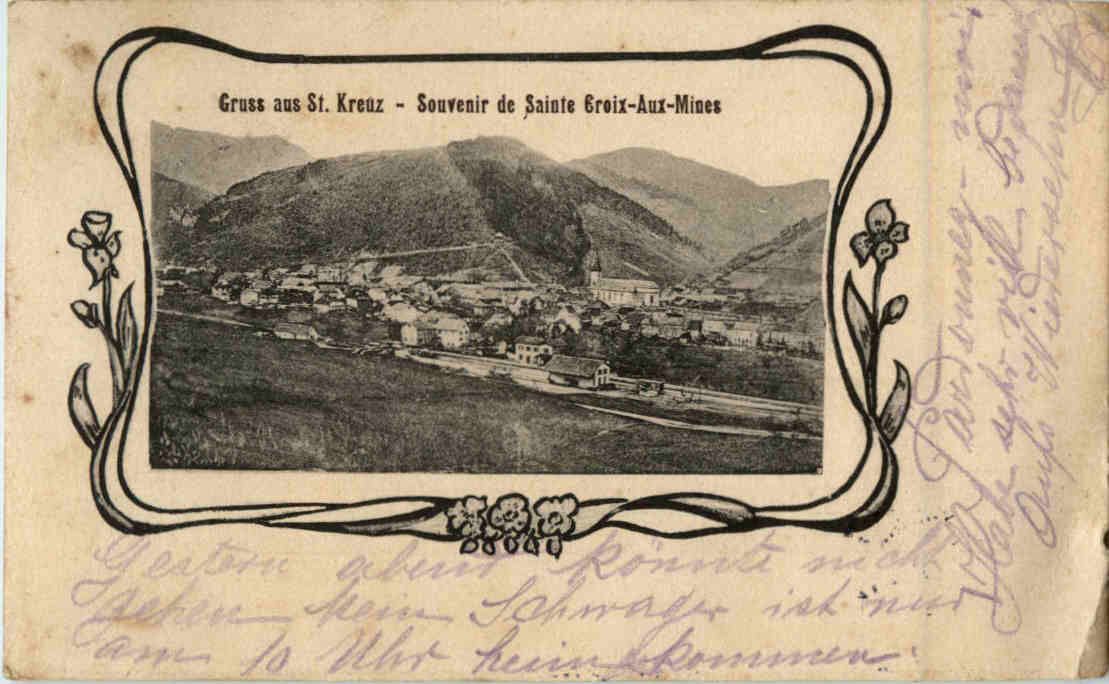 Gruss aus St. Kreuz - Souvenir de Sainte Croix-Aux-Mines
Gestern abend könnte nicht
gehen mein Schwager ist nur
am 10 Uhr heim kommen
Pardonney - moi
Habe sehr viel
Aufs Wiedersehn